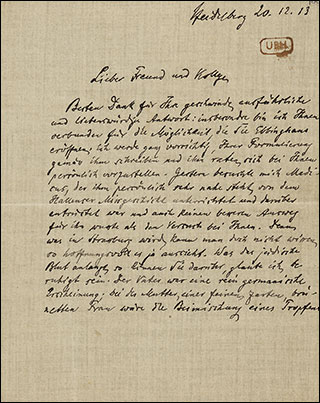 Heidelberg 20.12.13
UBH
Lieber Freund und Kollege,
Besten Dank für Ihre geschwinde, ausführliche
und liebenswürdige Antwort: insbesondre bin ich Ihnen
verbunden für die Möglichkeit, die Sie Ebbinghaus
eröffnen; ich werde ganz vorsichtig Ihrer Formulierung
gemäss ihm schreiben und ihm raten, sich bei Ihnen
persönlich vorzustellen. Gestern besuchte mich Medi-
cus, der ihm persönlich sehr nahe steht, von dem
Hallenser Missgeschick unterrichtet und darüber
entrüstet war und auch keinen besseren Ausweg
für ihn wusste als den Versuch bei Ihnen. Denn
was in Strassburg wird, kann man doch nicht wissen,
so hoffnungsvoll es ja aussieht. Was das jüdische
Blut anlangt, so können Sie darüber, glaube ich, be-
ruhigt sein. Der Vater war eine rein germanische
Erscheinung. bei der Mutter, einer feinen, zarten, brü-
netten Frau wäre die Beimischung eines Tropfens